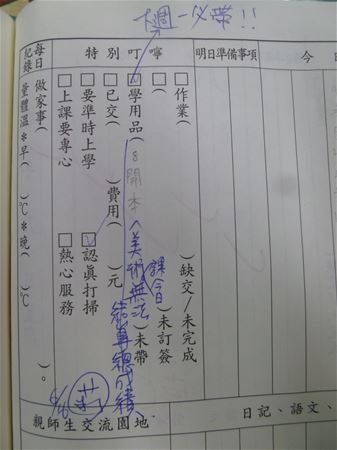 下週一必帶!!
今日
明日準備事項
特別叮嚀
每日紀錄
□作業( )缺交/未完成
□( )未訂簽
□學用品(8開本^美術課無法結算總成績)未帶
□已交( )費用( )元
□要準時上學
□認真打掃
□上課要專心
□熱心服務
做家事( )。
量體溫*早( )℃*晚( )℃
親師生交流園地
日記、語文、